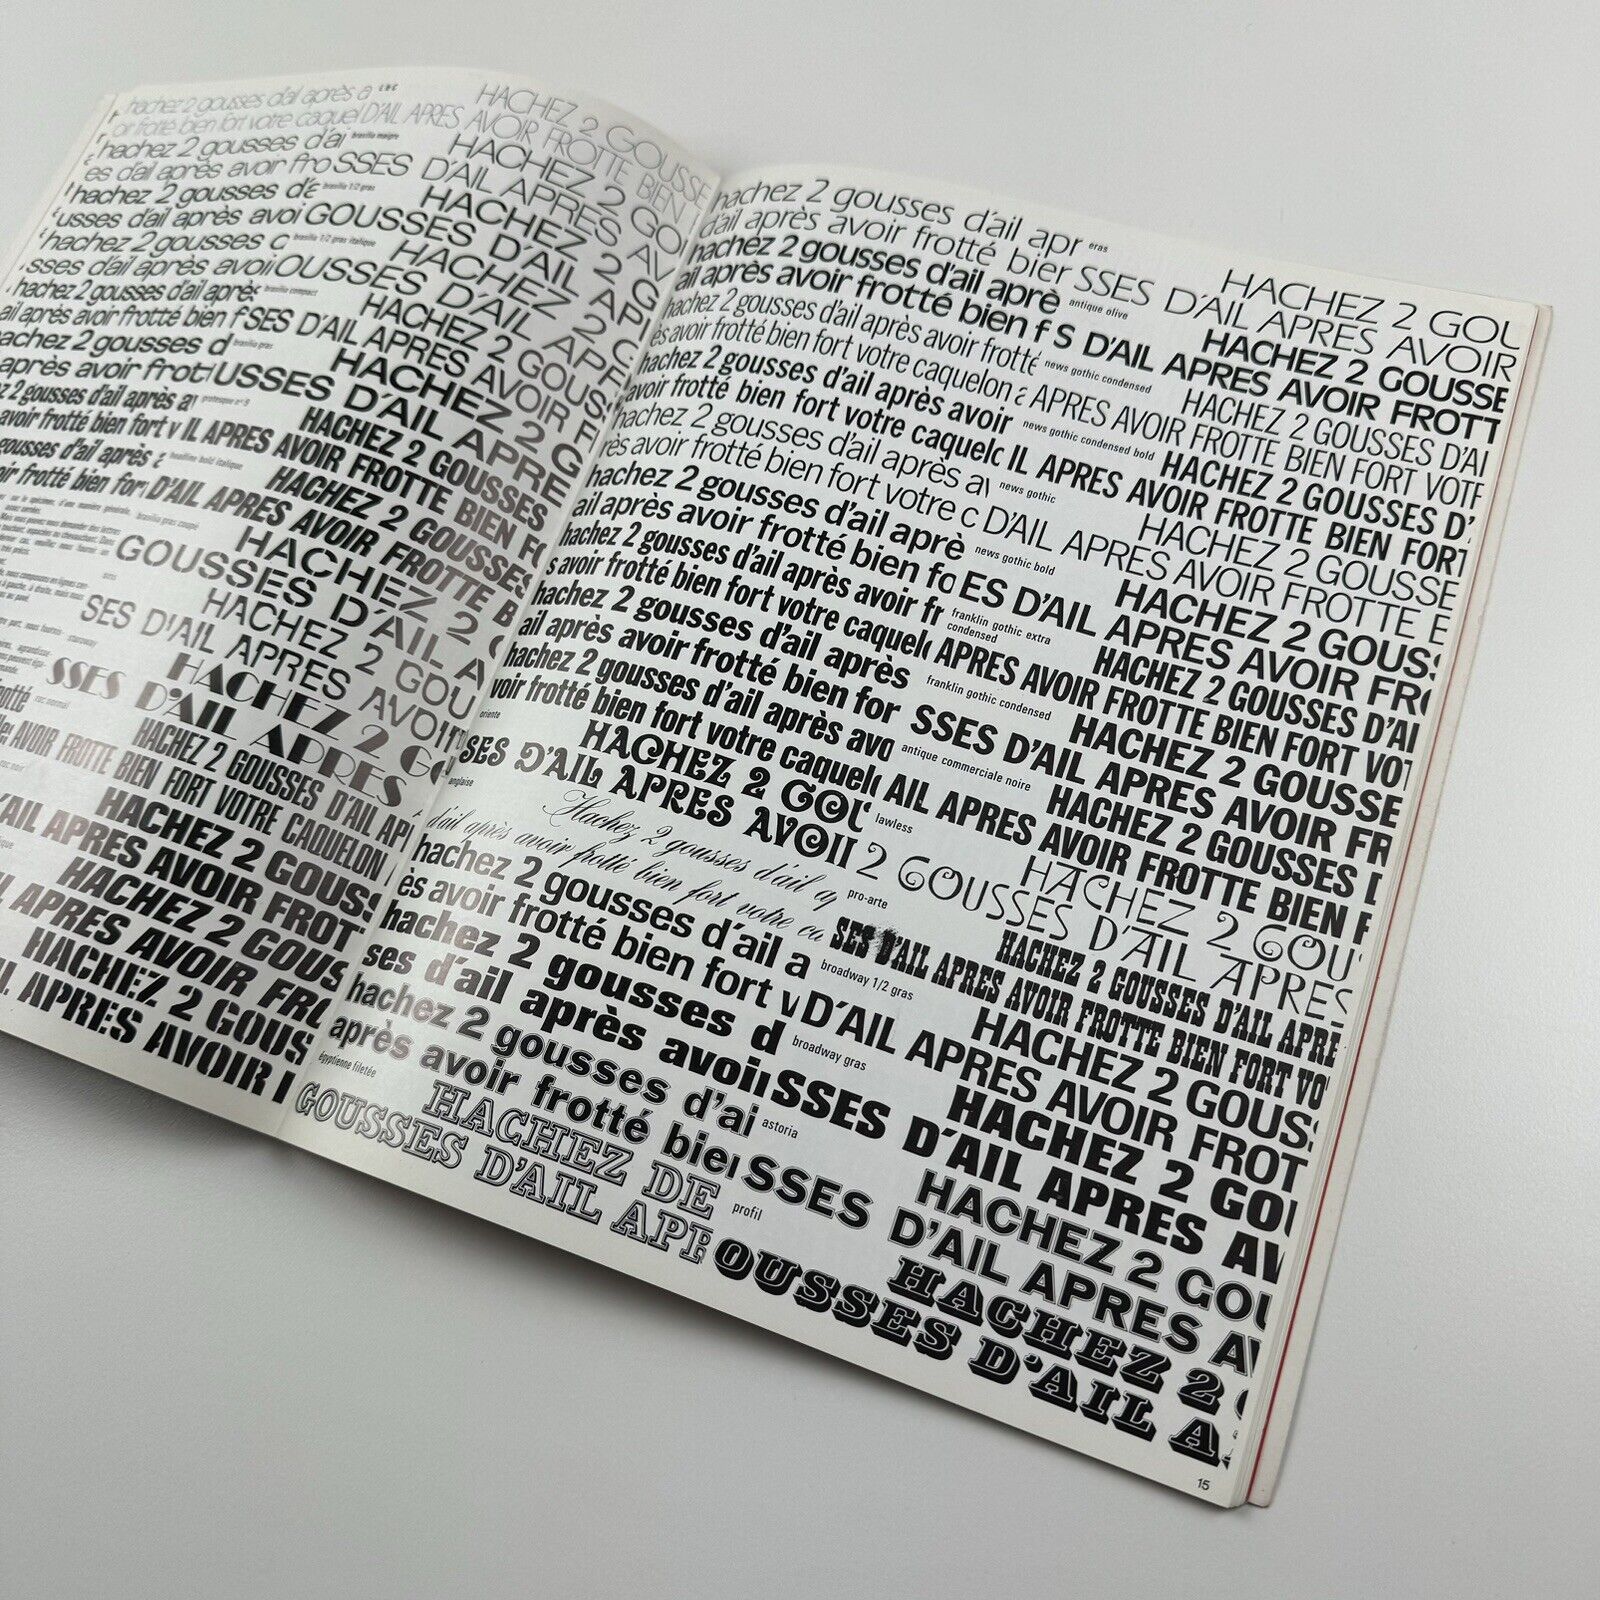 hachez 2 gousses d'ail après a
or frotté bien fort votre caquel D'AIL APRES AVOIR FROTTE BIEN
HACHEZ 2 GOUSSE
brasilia maigre
hachez 2 gousses d'ai
es d'ail après avoir fro SSES D'AIL APRES AV
HACHEZ 2 GOU
brasilia 1/2 gras
hachez 2 gousses d'a
usses d'ail après avoi GOUSSES D'AIL AP
HACHEZ 2 G
brasilia 1/2 gras italique
hachez 2 gousses
sses d'ail après avoi OUSSES D'AIL APRE
HACHEZ 2 G
brasilia compact
hachez 2 gousses d'ail après
ail après avoir frotté bien f SES D'AIL APRES AVOIR F
HACHEZ 2 GOUS
brasilia gras
hachez 2 gousses d
après avoir frot USSES D'AIL APRE
HACHEZ 2 G
grotesque n° 9
2 gousses d'ail après a
avoir frotté bien fort v IL APRES AVOIR FROTTE BIEN FO
HACHEZ 2 GOUSSES
headline bold italique
gousses d'ail après
oir frotté bien for D'AIL APRES AVOIR FROTTE B
HACHEZ 2 GOUSSES
brasilia gras coupé
HACHEZ 2
GOUSSES D'AIL A
HACHEZ 2 GOU
SES D'AIL APRES AVOI
HACHEZ 2 G
SSES D'AIL APRES
frotté
roc normal
HACHEZ 2 GOUSSES D'AIL AP
AVOIR FROTTE BIEN FORT VOTRE CAQUELON
roc noir
HACHEZ 2 GOUSS
AIL APRES AVOIR FROT
HACHEZ 2 GOUS
APRES AVOIR FRO
HACHEZ 2 GOUS
APRES AVOIR
hachez 2 gousses d'ail apr
d'ail après avoir frotté bier SSES D'AIL APRES AVOIR
eras
HACHEZ 2 GOU
hachez 2 gousses d'ail apre
ail après avoir frotté bien f S D'AIL APRES AVOIR FROTT
antique olive
HACHEZ 2 GOUSSE
hachez 2 gousses d'ail après avoir frotté
ès avoir frotté bien fort votre caquelon a APRES AVOIR FROTTE BIEN FORT VOTR
news gothic condensed
HACHEZ 2 GOUSSES D'AI
hachez 2 gousses d'ail après avoir
avoir frotté bien fort votre caquelc IL APRES AVOIR FROTTE BIEN FORT
news gothic condensed bold
HACHEZ 2 GOUSSES D'
hachez 2 gousses d'ail après av
rès avoir frotté bien fort votre c D'AIL APRES AVOIR FROTTE B
news gothic
HACHEZ 2 GOUSSE
hachez 2 gousses d'ail aprè
ail après avoir frotté bien fo ES D'AIL APRES AVOIR FRO
news gothic bold
HACHEZ 2 GOUSS
hachez 2 gousses d'ail après avoir fr
s avoir frotté bien fort votre caquelo APRES AVOIR FROTTE BIEN FORT VOT
franklin gothic extra
condensed
HACHEZ 2 GOUSSES D'AI
hachez 2 gousses d'ail après
ail après avoir frotté bien for SSES D'AIL APRES AVOIR FR
franklin gothic condensed
HACHEZ 2 GOUSSE
hachez 2 gousses d'ail après avo
voir frotté bien fort votre caquelo AIL APRES AVOIR FROTTE BIEN F
antique commerciale noire
HACHEZ 2 GOUSSES D
oriente
HACHEZ 2 GOU
SES D'AIL APRES AVOI
lawless
HACHEZ 2 GOU
2 GOUSSES D'AIL APRES
anglaise
Hachez 2 gousses d'ail ap
d'ail après avoir frotté bien fort votre ca
pro-arte
HACHEZ 2 GOUSSES D'AIL APRE
SES D'AIL APRES AVOIR FROTTE BIEN FORT VO
hachez 2 gousses d'ail a
ès avoir frotté bien fort v D'AIL APRES AVOIR FROT
broadway 1/2 gras
HACHEZ 2 GOUSS
hachez 2 gousses d
ses d'ail après avoi SSES D'AIL APRES AV
broadway gras
HACHEZ 2 GOU
hachez 2 gousses d'ai
après avoir frotté bien SSES D'AIL APRES AV
astoria
HACHEZ 2 GOU
égyptienne filetée
HACHEZ DE
GOUSSES D'AIL APR
profil
HACHEZ 2
OUSSES D'AIL A
15